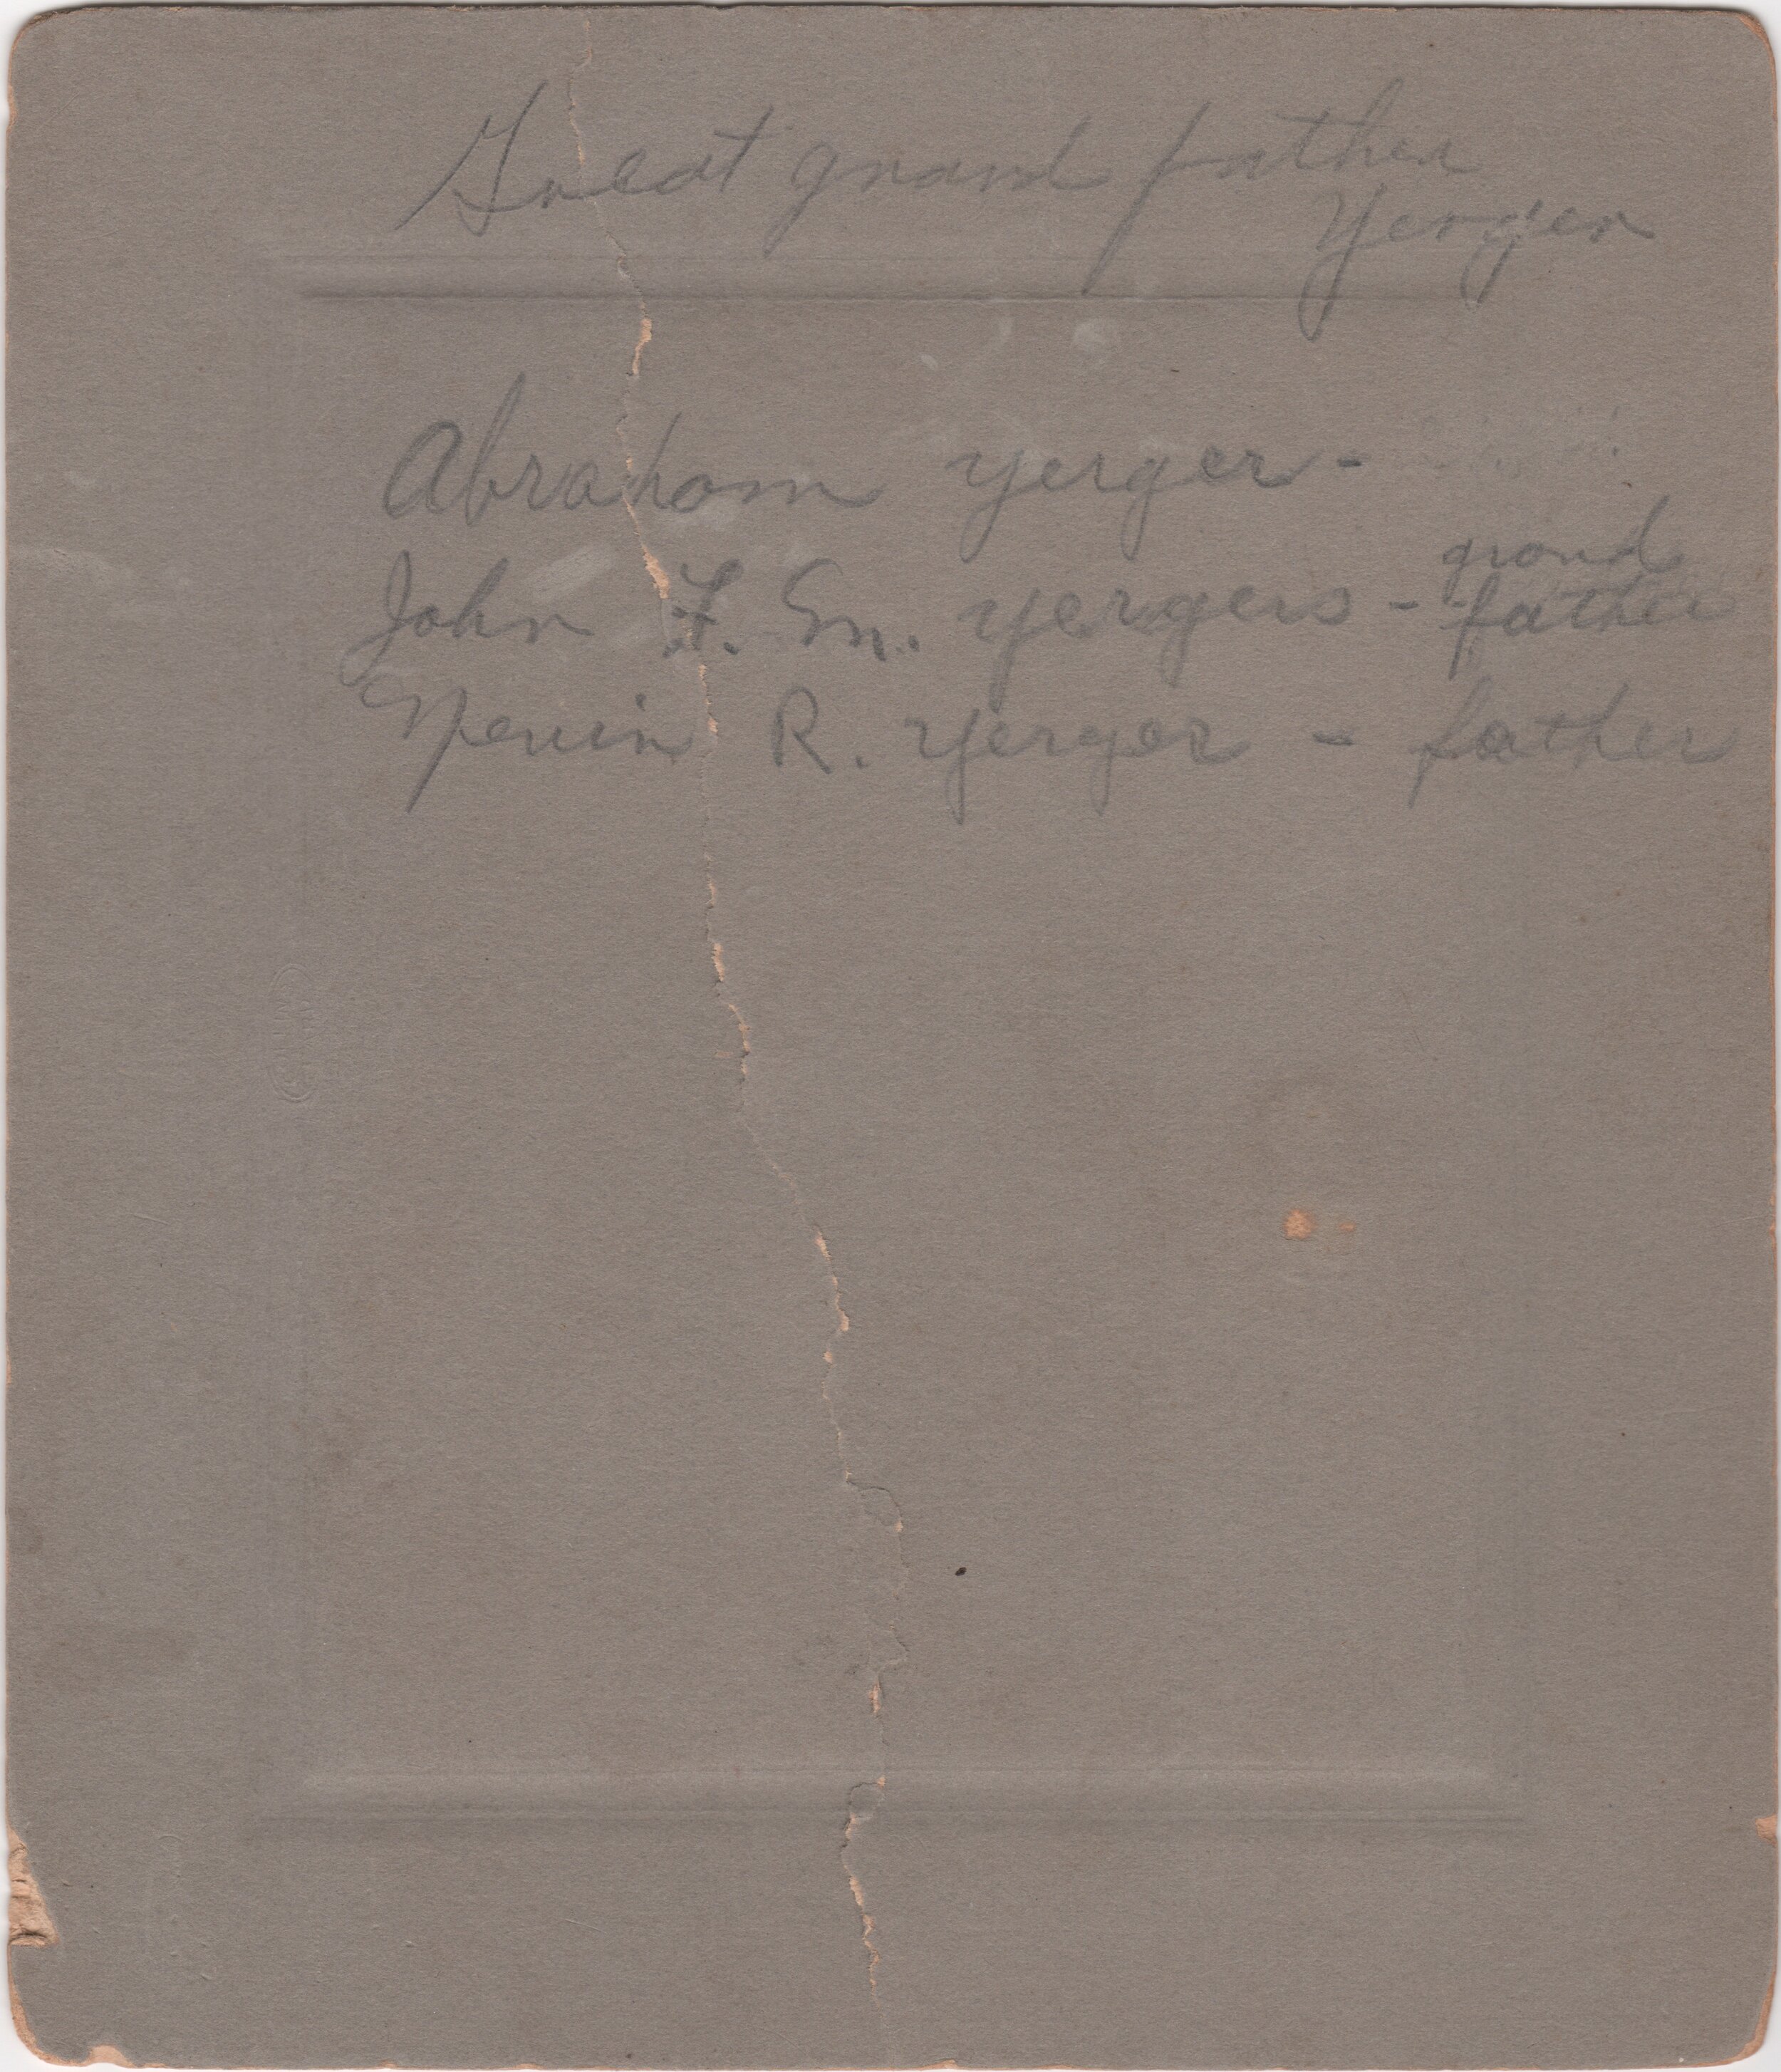 Great grand father
Yerger
Abraham Yerger -
John F. Em. Yergers - grand father
Nevin R. Yerger - father